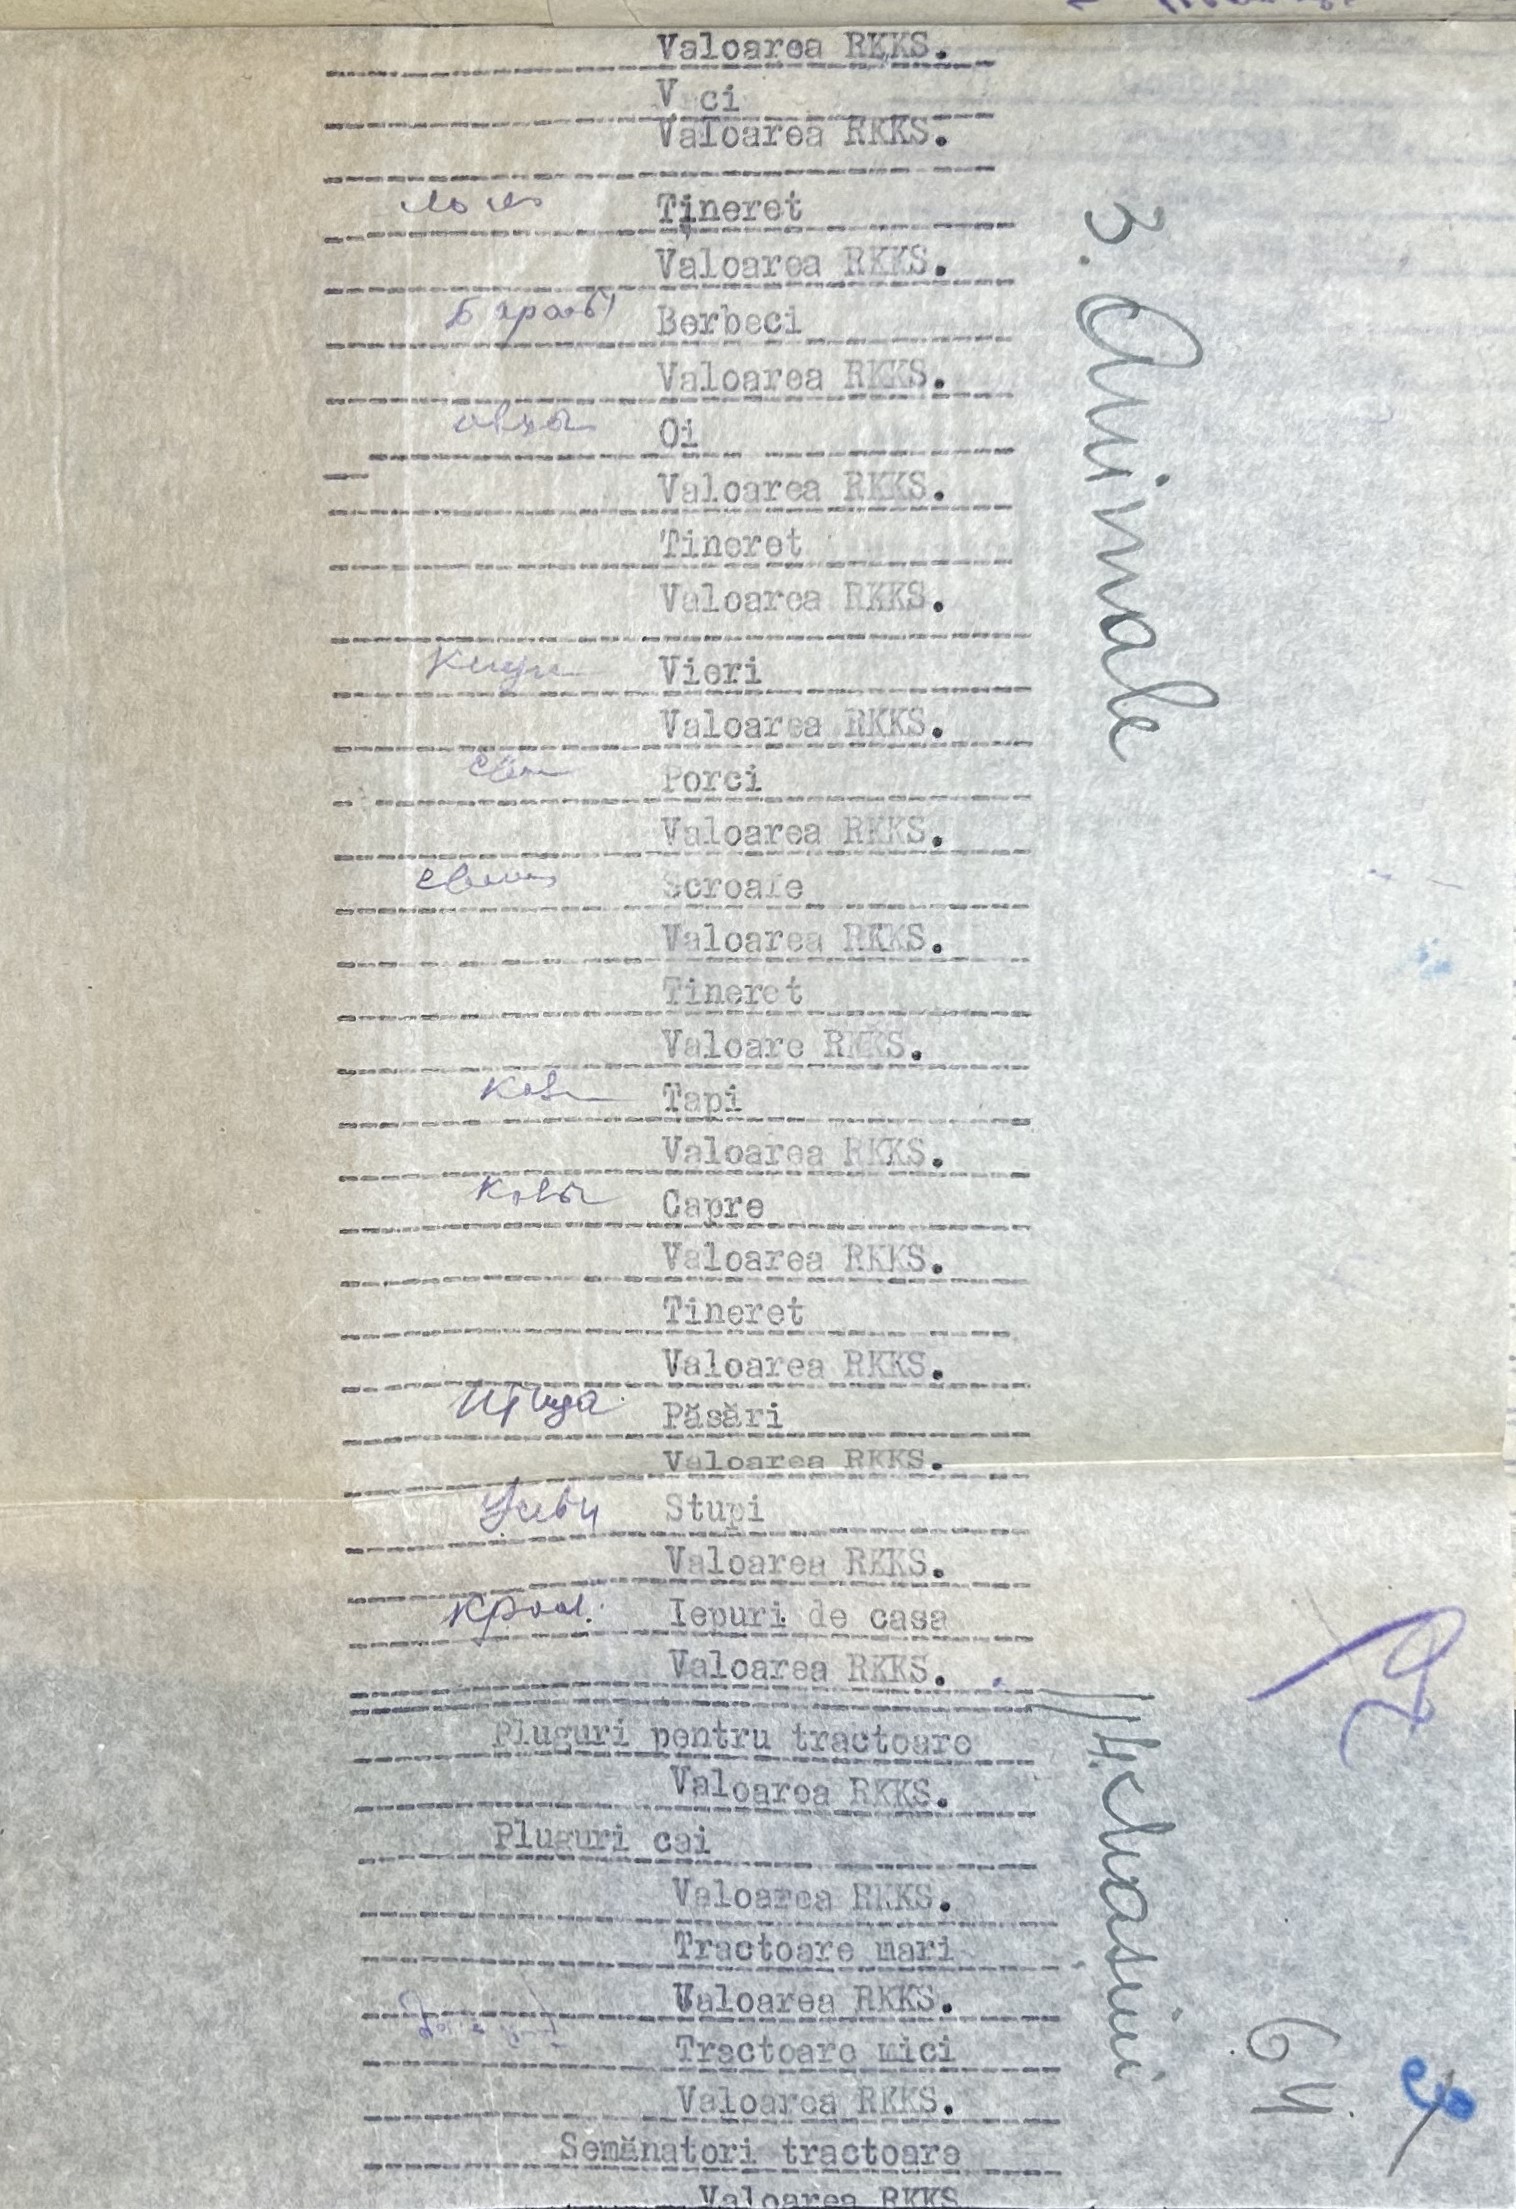 Valoarea RKKS.
V ci
Valoarea RKKS.
Tineret
Valoarea RKKS.
Berbeci
Valoarea RKKS.
Oi
Valoarea RKKS.
Tineret
Valoarea RKKS.
Vieri
Valoarea RKKS.
Porci
Valoarea RKKS.
Scroafe
Valoarea RKKS.
Tineret
Valoare RKKS.
Tapi
Valoarea RKKS.
Capre
Valoarea RKKS.
Tineret
Valoarea RKKS.
Птица Păsări
Valoarea RKKS.
Stupi
Valoarea RKKS.
Крол. Iepuri de casa
Valoarea RKKS.
Pluguri pentru tractoare
Valoarea RKKS.
Pluguri cai
Valoarea RKKS.
Tractoare mari
Valoarea RKKS.
Tractoare mici
Valoarea RKKS.
Semănatori tractoare
Valoarea RKKS
3. Animale
4. Mașini
64